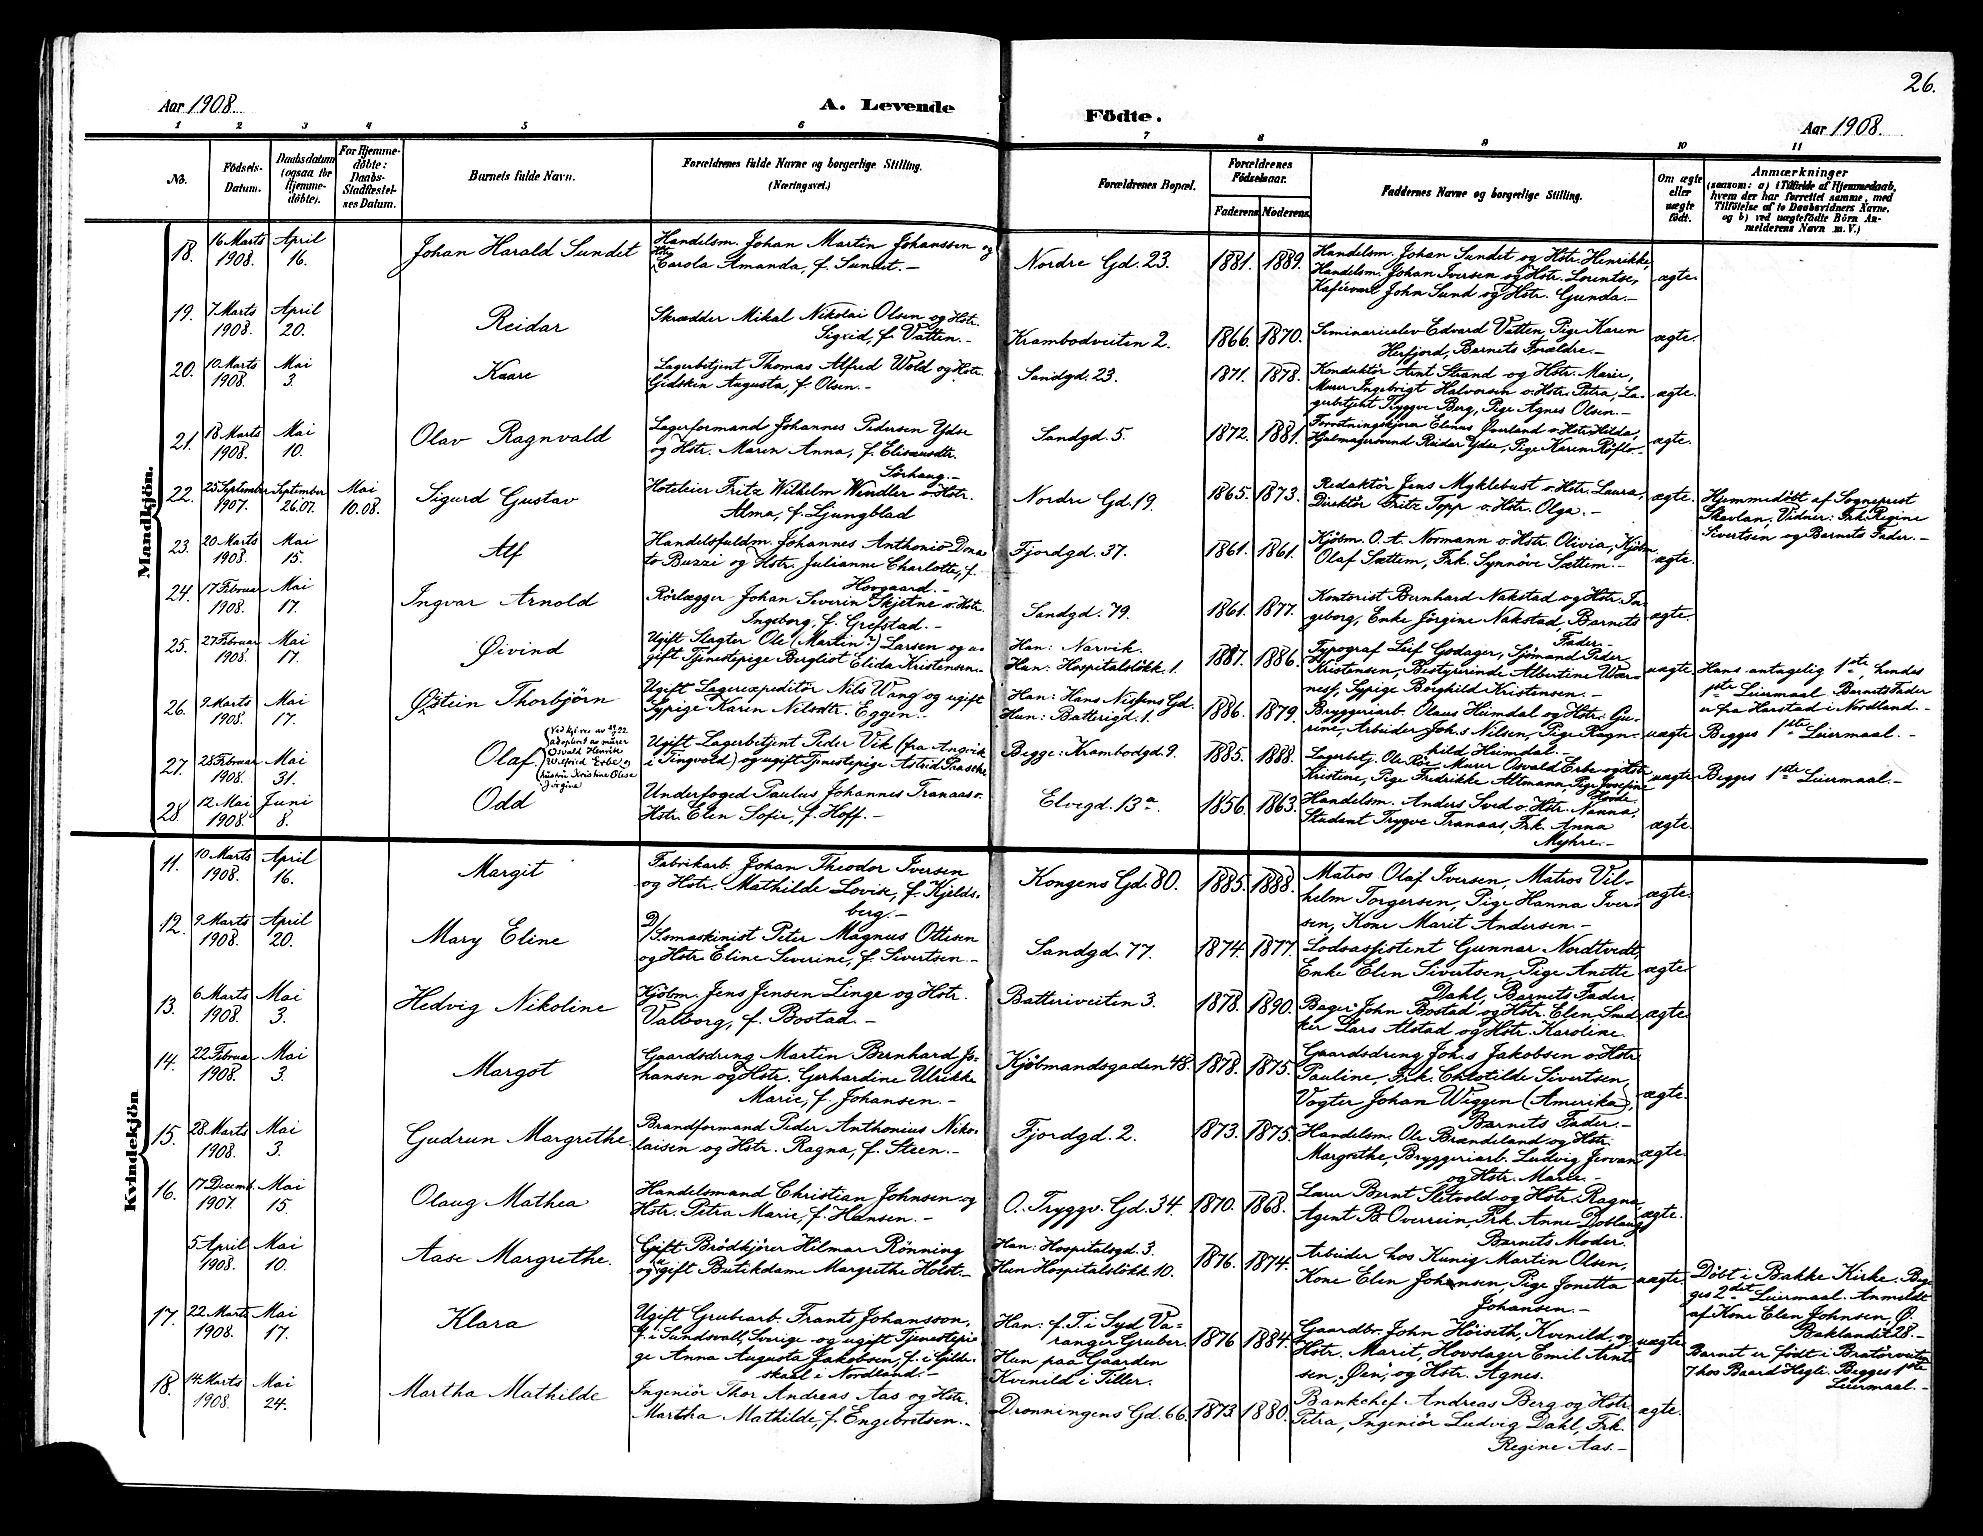 26.
Aar 1908.
A. Levende Födte.
Aar 1908.
1 2 3 4 5 6 7 8 9 10 11
No.
Födsels-Datum.
Daabsdatum (ogsaa for Hjemme-döbte).
For Hjemme-döbte: Daabs-Stadfæstel-ses Datum.
Barnets fulde Navn.
Forældrenes fulde Navne og borgerlige Stilling. (Næringsvei.)
Forældrenes Bopæl.
Forældrenes Födselsaar.
Faderens. Moderens.
Faddernes Navne og borgerlige Stilling.
Om ægte eller uægte födt.
Anmærkninger
(saasom: a) i Tilfælde af Hjemmedaab,
hvem der har forrettet samme, med
Tilföielse af to Daabsvidners Navne,
og b) ved uægtefödte Börn An-
melderens Navn m. V.)
Mandkjön.
18. 16 Marts 1908. April 16. Johan Harald Sundet
Handelsm. Johan Martin Johanssen og
Hstr. Carola Amanda, f. Sundet.-
Nordre Gd. 23. 1881. 1889.
Handelsm. Johan Sundet og Hstr. Henrikke,
Handelsm. Johan Iversen og Hstr. Lorentse,
Kafévert John Sund og Hstr. Gunda.-
ægte.
19. 7 Marts 1908. April 20. Reidar
Skrædder Mikal Nikolai Olsen og Hstr.
Sigrid, f. Vatten.-
Krambodveiten 2. 1866. 1870.
Seminarieelev Edvard Vatten, Pige Karen
Herfjord, Barnets Forældre.-
ægte.
20. 10 Marts 1908. Mai 3. Kaare
Lagerbetjent Thomas Alfred Wold og Hstr.
Gidskin Augusta, f. Olsen.-
Sandgd. 23. 1871. 1878.
Konduktör Arnt Strand og Hstr. Marie,
Murer Ingebrigt Halvorsen o. Hstr. Petra, La-
gerbetjent Tryggve Berg, Pige Agnes Olsen.-
ægte.
21. 18 Marts 1908. Mai 10. Olav Ragnvald
Lagerformand Johannes Pedersen Ydse
og Hstr. Maren Anna, f. Eliseusdtr.
Sörhaug.-
Sandgd. 5. 1872. 1881.
Elinus Överland o. Hstr. Hilda,
Reidar Ydse, Pige Karen Röflo.-
ægte.
22. 25 September 1907. September 26. 07. Mai 10. 08. Sigurd Gustav
Hoteleier Fritz Wilhelm Wendler o. Hstr.
Alma, f. Ljungblad
Nordre Gd. 19. 1865. 1873.
Redaktör Jens Myklebust o. Hstr. Laura,
Direktör Fritz Topp o. Hstr. Olga.-
ægte.
Hjemmedöbt af Sogneprest
Skavlan, Vidner: Frk. Regine
Sivertsen og Barnets Fader.-
23. 20 Marts 1908. Mai 15. Alf
Handelsfuldm. Johannes Anthonio Dona-
to Buzzi og Hstr. Julianne Charlotte, f.
Hovgaard.-
Fjordgd. 37. 1861. 1861.
Kjöbm. O. A. Normann o. Hstr. Olivia, Kjöbm.
Olaf Sættem, Frk. Synnöve Sættem.-
ægte.
24. 17 Februar 1908. Mai 17. Ingvar Arnold
Rörlægger Johan Severin Skjetne o. Hstr.
Ingeborg, f. Grefstad.-
Sandgd. 79. 1861. 1877.
Kontorist Bernhard Nakstad og Hstr. In-
geborg, Enke Jörgine Nakstad, Barnets
Fader.
ægte.
25. 27 Februar 1908. Mai 17. Øivind
Ugift Slagter Ole (Martin?) Larsen og u-
gift Tjenestepige Bergliot Elida Kristensen.-
Han: Narvik.
Hun: Hospitalslökk. 1.
1887. 1886.
Typograf Leif Godager, Sjömand Peder
Kristensen, Bestyrerinde Albertine Wær-
ness, Sypige Borghild Kristensen.-
uægte
Hans antagelig 1ste, hendes
1ste Leiermaal. Barnets Fader
er fra Harstad i Nordland.-
26. 9 Marts 1908. Mai 17. Øistein Thorbjörn
Ugift Lagerexpeditör Nils Wang og ugift
Sypige Karen Nilsdtr. Eggen.-
Han: Hans Nissens Gd.
Hun: Batterigd. 1.
1886. 1879.
Bryggeriarb. Olaus Heimdal og Hstr. Gu-
rine, Arbeider Joh.s Nilsen, Pige Ragn-
hild Heimdal.-
uægte
Begges 1ste Leiermaal.-
27. 28 Februar 1908. Mai 31. Olaf
adoptert av murer
Osvald Henrik
Wilfred Erbe og
hustru Kristine Olise
Jörgine
Ugift Lagerbetjent Peder Vik (fra Angvik
i Tingvold) og ugift Tjenestepige Astrid Paasche
Begge: Krambodgd. 9. 1885. 1888.
Lagerbetj. Ole Röe, Murer Osvald Erbe og Hstr.
Kristine, Pige Fredrikke Altmann, Pige Josefine
uægte
Begges 1ste Leiermaal.-
28. 12 Mai 1908. Juni 8. Odd
Underfoged Paulus Johannes Tranaas o.
Hstr. Elen Sofie, f. Hoff.-
Elvegd. 13 a. 1856. 1863.
Handelsm. Anders Sved o. Hstr. Nanna,
Student Trygve Tranaas, Frk. Anna
Myhre.-
ægte.
Kvindekjön
11. 10 Marts 1908. April 16. Margit
Fabrikarb. Johan Theodor Iversen
og Hstr. Mathilde Lovise, f. Kjelds-
berg.-
Kongens Gd. 80. 1885. 1888.
Matros Olaf Iversen, Matros Vil-
helm Torgersen, Pige Hanna Iver-
sen, Kone Marit Andersen.-
ægte.
12. 9 Marts 1908. April 20. Mary Eline
D/Ssmaskinist Peter Magnus Ottesen
og Hstr. Eline Severine, f. Sivertsen.-
Sandgd. 77. 1874. 1877.
Lodsassistent Gunnar Nordtvedt,
Enke Elen Sivertsen, Pige Anette
Dahl, Barnets Fader.
ægte.
13. 6 Marts 1908. Mai 3. Hedvig Nikoline
Kjöbm. Jens Jensen Linge og Hstr.
Valborg, f. Bostad.-
Batteriveiten 3. 1878. 1890.
Bager John Bostad og Hstr. Elen, Sned-
ker Lars Alstad og Hstr. Karoline.
ægte.
14. 22 Februar 1908. Mai 3. Margot
Gaardsdreng Martin Bernhard Jo-
hansen og Hstr. Gerhardine Ulrikke
Marie, f. Johansen.-
Kjöbmandsgaden 48. 1878. 1875.
Gaardsdreng Joh.s Jakobsen o. Hstr.
Pauline, Frk. Chlotilde Sivertsen,
Vogter Johan Wiggen (Amerika),
Barnets Fader.-
ægte.
15. 28 Marts 1908. Mai 3. Gudrun Margrethe
Brandformand Peder Anthonius Niko-
laisen og Hstr. Ragna, f. Steen.-
Fjordgd. 2. 1873. 1875.
Handelsm. Ole Brændeland og Hstr.
Margrethe, Bryggeriarb. Ludvig Jervan
og Hstr. Marie.-
ægte.
16. 17 Decemb. 1907. Mai 15. Olaug Mathea
Handelsmand Christian Johnsen og
Hstr. Petra Marie, f. Hansen.-
O. Tryggv. Gd. 34. 1870. 1868.
Lærer Bernt Sletvold og Hstr. Ragna,
Agent B. Overrein, Frk. Anne Doblaug,
Barnets Moder.
ægte.
5 April 1908. Mai 10. Aase Margrethe.
Gift Brödkjörer Hilmar Rönning
og ugift Butikdame Margrethe Holst.-
Han: Hospitalsgd. 3.
Hun Hospitalslökk. 10.
1876. 1874.
Arbeider hos Kunig Martin Olsen,
Kone Elen Johnsen, Pige Jonetta
Johansen.-
uægte
Döbt i Bakke Kirke. Beg-
ges 2det Leiermaal. Anmeldt
af Kone Elen Johnsen, Ø.
Baklandet 28.-
17. 22 Marts 1908. Mai 17. Klara
Ugift Grubearb. Frants Johansson,
f. i Sundsvall, Sverige og ugift Tjenestepi-
ge Anna Augusta Jakobsen, f. i Gilde-
skaal i Nordland.-
Han: f. T. i Syd Va-
ranger Gruber.
Hun paa Gaarden
Kvenild i Tiller.
1876 1884.
Gaardbr. John Höiseth, Kvenild, og
Hstr. Marit, Hovslager Emil Arnt-
sen, Øen, og Hstr. Agnes.
uægte
Barnet er födt i Bratörveiten
7 hos Baard Hegle. Begges 1ste
Leiermaal.-
18. 14 Marts 1908. Mai 24. Martha Mathilde
Ingeniör Thor Andreas Aas og Hstr.
Martha Mathilde, f. Engebretsen.-
Dronningens Gd. 66. 1873. 1880.
Bankchef Andreas Berg og Hstr.
Petra, Ingeniör Ludvig Dahl, Frk.
Regine Aas.-
ægte.